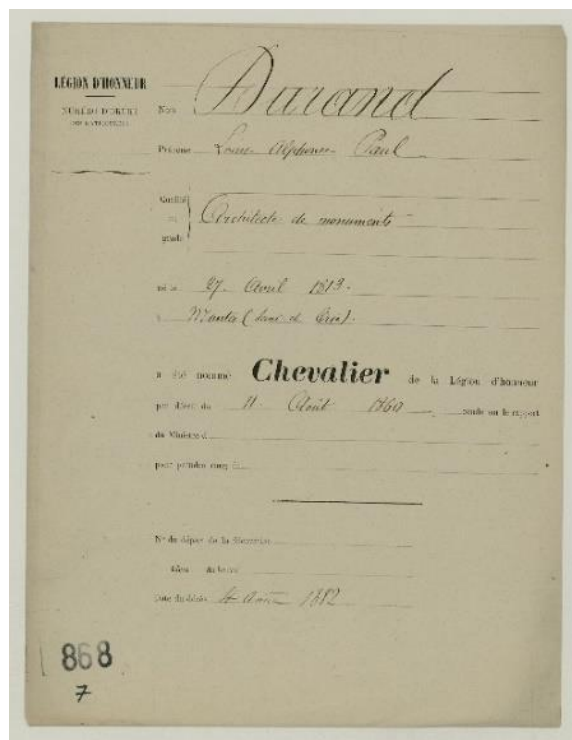 LÉGION D'HONNEUR
NUMÉRO D'ORDRE
DES MATRICULES
Nom Durand
Prénoms Louis Alphonse Paul
Qualité
ou
grade
Architecte de monuments
né le 27 Avril 1813.
à Mantes (Seine et Oise).
a été nommé Chevalier de la Légion d'honneur
par décret du 11 Août 1869 rendu sur le rapport
du Ministre d
pour prendre rang
N° du dépar de la
Date du décès 4 1882
868
7